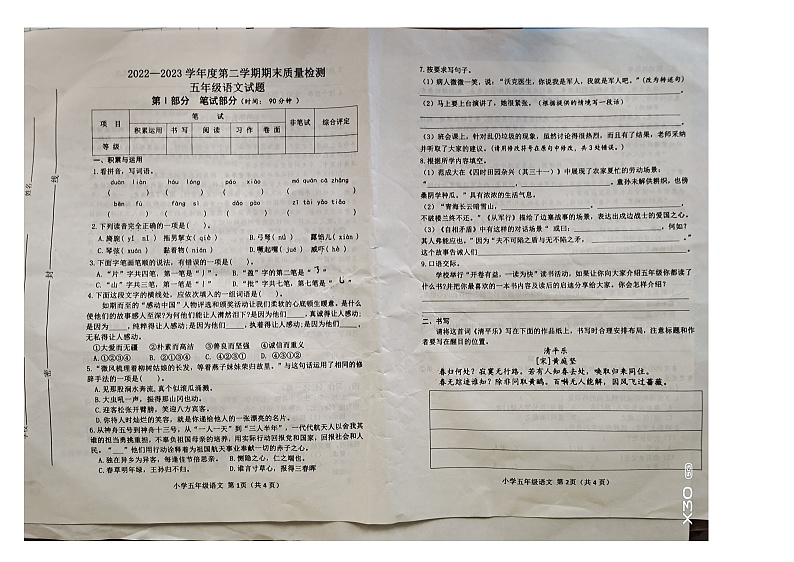 2022—2023 学年度第二学期期末质量检测
五年级语文试题
第Ⅰ部分 笔试部分(时间: 90分钟 )
项 目 笔 试 非笔试 综合评定
积累运用 书 写 阅 读 习 作 卷 面
等 级
一、积累与运用
1.看拼音，写词语。
duàn liàn hòu lóng páo xiào mó quán cā zhǎng
( ) ( ) ( ) ( )
bēn fù fàng sì dǎo gào zī tài yǎo tiǎo
( ) ( ) ( ) ( )
2.下列读音完全正确的一项是( )。
A.胯腹( yǐ nǐ ) 拖男挈女( qiè ) B.弓弩( nǔ ) 露馅儿( xiàn )
C.琴弦( xuán ) 黏着物( nián ) D.噘起嘴( juē ) 威吓( hè )
3.下面字笔画笔顺的说法，有错误的一项是( )。
A.“片”字共四笔，第一笔是“丿”。 B.“盈”字的第二笔是“㇋”
C.“山”字共三笔，第一笔是“丨”。 D.“批”字共七笔，第七笔是“乚”
4.下面这段文字的横线处，应依次填入的一组词语是( )。
如期而至的“感动中国”人物评选和颁奖活动让我们柔软的心底顿生暖意。是什么
使他们的故事感人至深?为何他们能让人潸然泪下?是因为他们____,真诚得让人感动;
是因为____,纯粹得让人感动;是因为他们____,执着得让人感动;是因为他们____,
无私得让人感动。
①大爱而无疆 ②朴素而高洁 ③善良而坚强 ④诚信而重义
A.①②③④ B.②①③④ C. ④②③① D. ④③②①
5.“微风梳理着柳树姑娘的长发，等着燕子妹妹荣归故里。”与这句话运用了相同的修
辞手法的一项是( )。
A.见那股涧水奔流,真个似滚瓜涌溅。
B.大虫吼一声，振得那山冈也动。
C.迎客松张开臂膀，笑迎八方宾客。
D.你待人时灿烂的笑容，就是你递给他人的一张漂亮的名片。
6.从神舟五号到神舟十三号，从“一人一天”到“三人半年”，一代代航天人以舍我其
谁的担当勇挑重担，不辜负祖国母亲的培养，用实际行动回报党和国家，回报社会和人
民。“___”他们用行动诠释着为祖国航天事业奉献一切的赤子之心。
A.独在异乡为异客，每逢佳节倍思亲。 B.恻隐之心，仁之端也。
C.春草明年绿，王孙归不归。 D.谁言寸草心，报得三春晖
小学五年级语文 第1页（共4页）
姓名
线
封
密
7.按要求写句子。
(1) 病人微微一笑，说：“沃克医生，你说我是军人，我就是军人吧。”(改为转述句)
(2) 马上要上台演讲了，她很紧张。(根据提供的情境写一段话)
(3) 班会课上，针对乱扔垃圾的现象，虽然讨论得很热烈，而且有了结果，老师采纳
并听取了大家的建议。(请用修改符号在原句中修改，共3处错误。)
8.根据所学内容填空。
(1) 范成大在《四时田园杂兴（其三十一）》中展现了农家夏忙的劳动场景:
“________，________。________，童孙未解供耕织，也傍
桑阴学种瓜。”具有浓浓的生活气息。
(2) “青海长云暗雪山，________。________，
不破楼兰终不还。”《从军行》描绘了边塞战事的场景，表达出戍边战士的爱国之心。
(3) 《自相矛盾》中有这样的对话场景“或曰:________，何如？
其人弗能应也。”因为“夫不可陷之盾与无不陷之矛，________。”
这个故事告诫人们________。
9.口语交际。
学校举行“开卷有益，一读为快”读书活动，如果让你向大家介绍五年级你都读了
什么书?并把你最喜欢的一本书内容及读后的启迪分享给大家，你会怎样介绍?
二、书写
请将这首词《清平乐》写在下面的作品纸上，书写时合理安排布局，注意标题和作
者要写在醒目的位置。
清平乐
[宋]黄庭坚
春归何处? 寂寞无行路。若有人知春去处，唤取归来同住。
春无踪迹谁知? 除非问取黄鹂。百啭无人能解，因风飞过蔷薇。
小学五年级语文 第2页（共4页）
X30